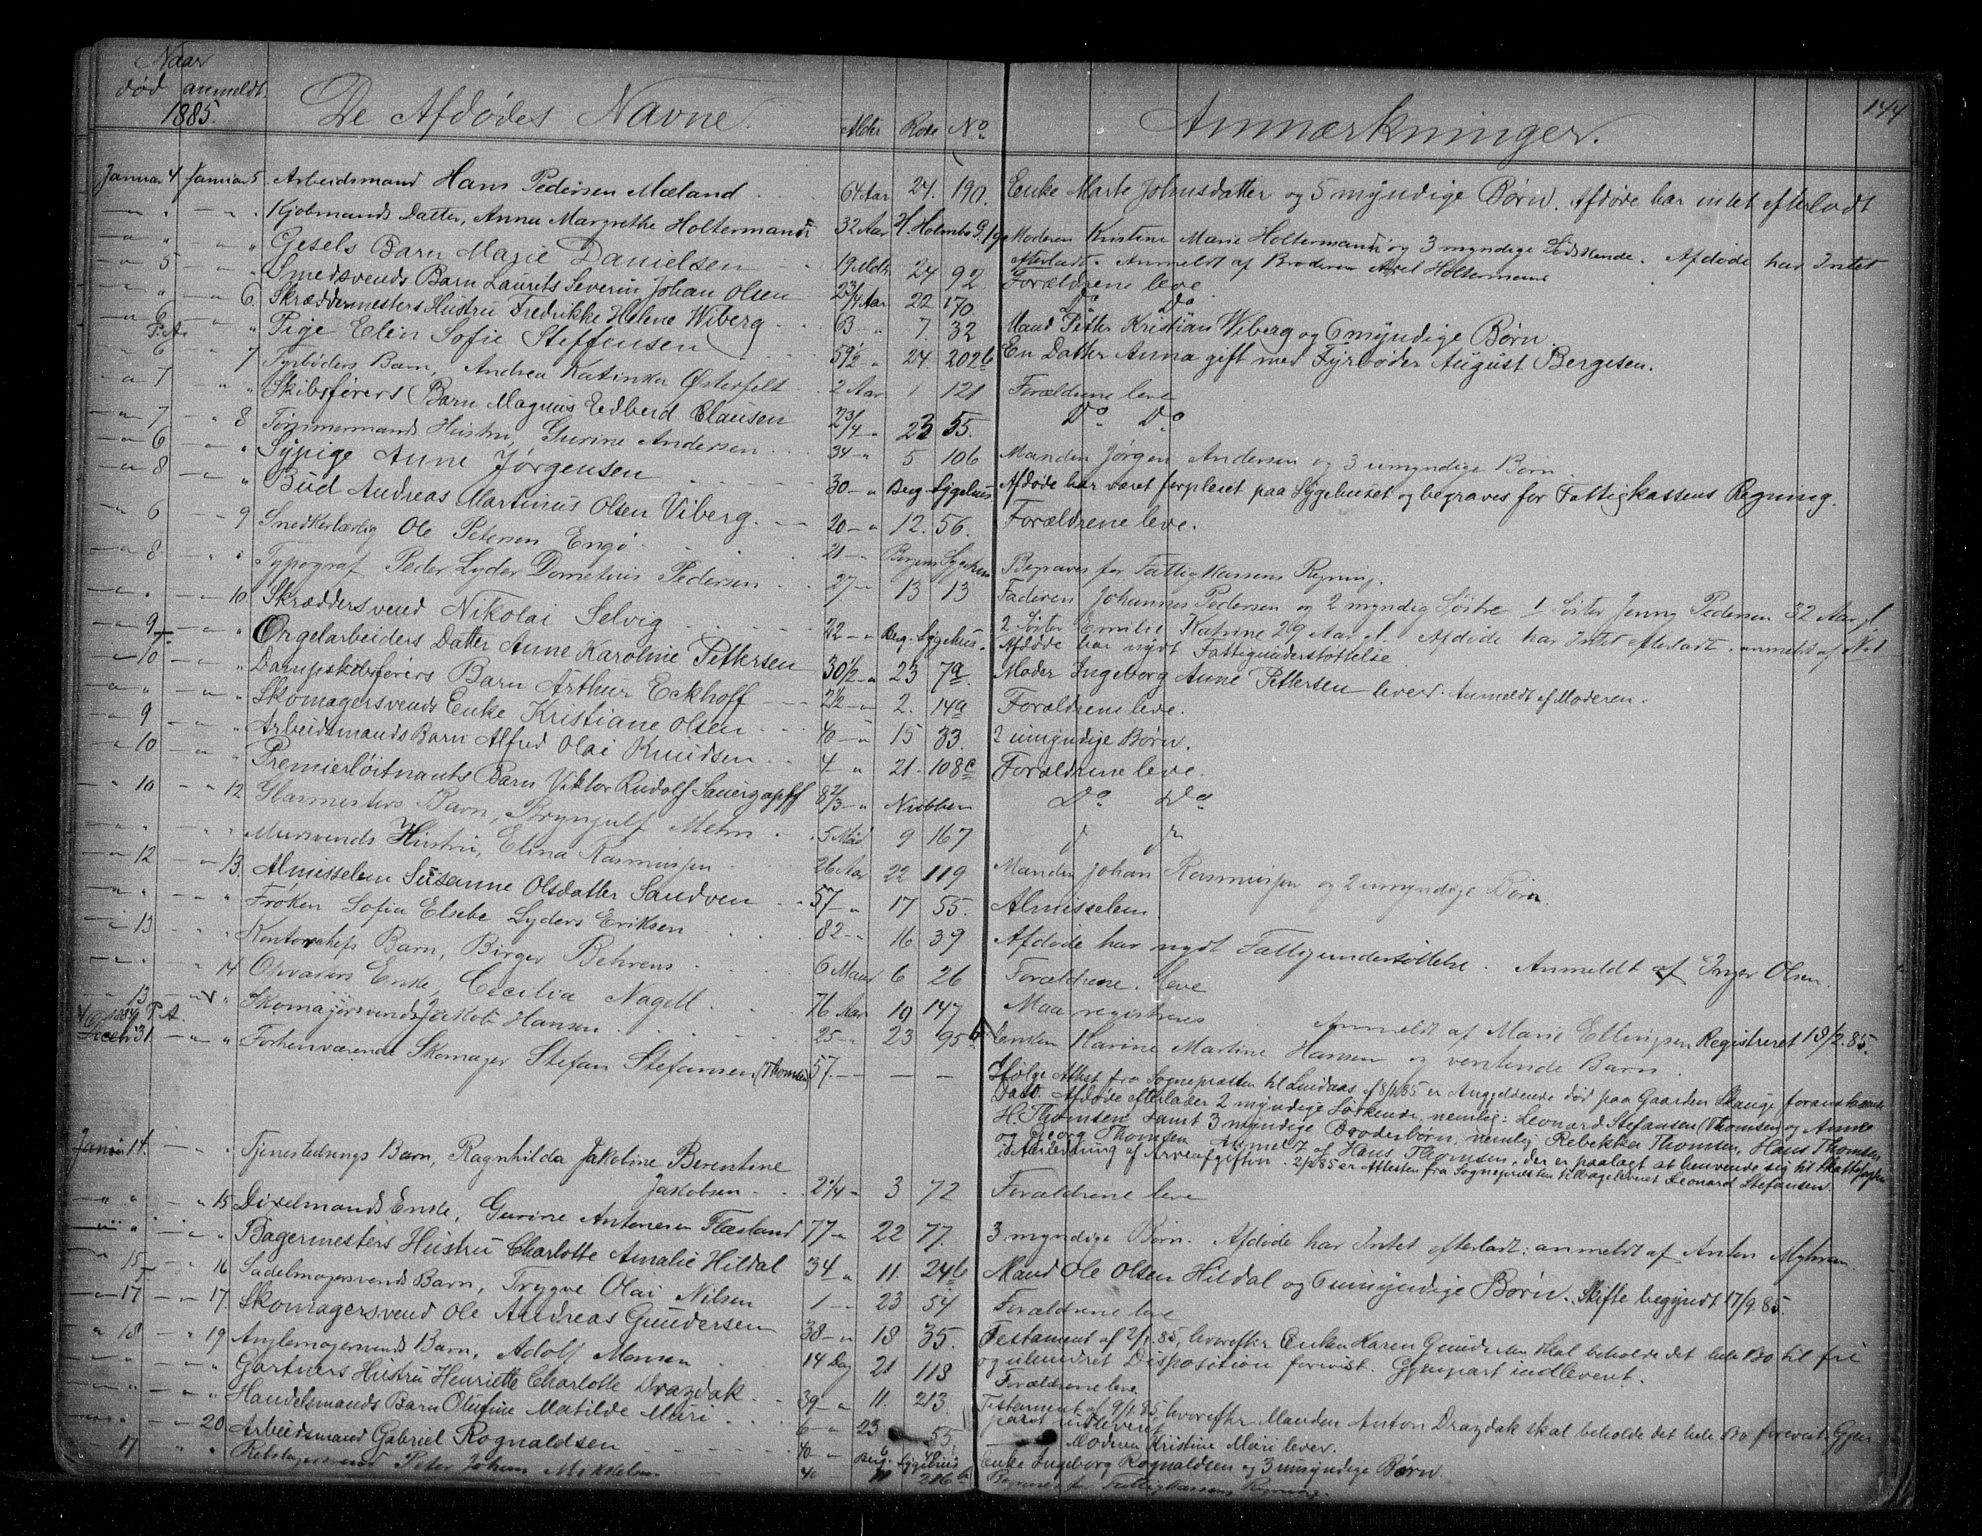 Naar
død anmeldt
1885.
De Afdødes Navne.
Alder Rode No
Anmærkninger.
144
Januar 4 Januar 5 Arbeidsmand Hans Pedersen Mæland 64 Aar 24. 190. Enke Marte Johnsdatter og 5 myndige Børn. Afdøde har intet efterladt
Kjølmands Datter, Anna Margrethe Holtermann 32 Aar H. Holmbo G. 19 Moderen Kristine Marie Holtermann og 3 myndige Sødskende. Afdøde har Intet
efterladt. Anmeldt af Broderen Axel Holtermann
Gesels Barn Marie Danielsen 19 Mdr 24 92 Forældrene leve
5 Smedsvends Barn Laurits Severin Johan Olsen 2 3/4 Aar 22 170 Do Do
6 Skræddermesters Hustru Fredrikke Helene Wiberg 63 7. 32 Mand Petter Kristian Wiberg og 6 myndige Børn.
6 P.A. Pige Elen Sofie Steffensen 59 1/2 24. 202b En Datter Anna gift med Fyrbøder August Bergesen.
6 7 Fyrbøders Barn, Andrea Katinka Østerfelt 2 Aar 1 121 Forældrene leve
7 Skibsførers Barn Magnus Edberd Clausen 2 3/4 23 55. Do Do
7 8 Tømmermands Hustru, Gurine Andersen 34 5 106 Manden Jørgen Andersen og 3 umyndige Børn.
6 Sypige Anne Jørgensen 30 Berg. Sygehus Afdøde har været forpleiet paa Sygehuset og begraves for Fattigkassens Regning.
8 Bud Andreas Martinus Olsen Viberg. 20 12. 56. Forældrene leve.
6 9 Snedkerlærlig Ole Petersen Engø 21 Bergens Sygehus Begraves for Fattigkassens Regning.
8 Typograf Peder Lyder Dometius Pedersen 27 13 13 Faderen Johannes Pedersen og 2 myndig Søstre 1 Søster Jenny Pedersen 32 Aar gl.
2 Søster Emilie Katrine 29 Aar gl. Afdøde har Intet efterladt. anmeldt af No 1
10 Skræddersvend Nikolai Selvig 22 Berg. Sygehus. Afdøde har nydt Fattigunderstøttelse.
9 Orgelarbeiders Datter Anne Karoline Pettersen 30 1/2 23 7a Moder Ingeborg Anne Pettersen lever. Anmeldt af Moderen.
10 Dampskibsførers Barn Arthur Eckhoff 2 1/2 2. 14a Forældrene leve.
Skomagersvends Enke Kristiane Olsen 40 15 33. 2 umyndige Børn.
9 Arbeidsmands Barn Alfred Olai Knudsen 4 21. 108c Forældrene leve.
10 Premierløitnants Barn Viktor Rudolf Sauerzapff 8 2/3 Nubben Do Do
10 12 Glasmesters Barn, Brynjulf Mehn 5 Md 9 167
Mursvends Hustru, Elina Rasmussen 26 Aar 22 119 Manden Johan Rasmussen og 2 umyndige Børn
12 13. Almisselem Susanne Olsdatter Sandven 57 17 55. Almisselem.
Frøken Sofia Elsebe Lyders Eriksen 82 16 39 Afdøde har nydt Fattigunderstøttelse. Anmeldt af Inger Olsen.
13 Kontorchefs Barn, Birger Behrens 6 Maan 6 26 Forældrene leve
14 Opvasers Enke, Cecilia Nagell 76 Aar 19 147 Maa registreres Anmeldt af Marie Ellingsen Registreret 13/2.85.
13 Skomagersvend Jakob Hansen 25 23 95b Enken Karine Martine Hansen og ventende Barn.
1884 P.A. Decbr 31 Forhenværende Skomager Stefan Stefansen (Thomsen) 57. Ifølge Attest fra Sognepræsten til Lindaas af 8/1 85 er Angjeldende død paa Gaarden Skauge foranstaaende
Dato. Afdøde efterlader 2 myndige Søskende, nemlig: Leonard Stefansen (Thomsen) og Anne
H. Thomsen samt 3 myndige Broderbørn, nemlig Rebekka Thomsen, Hans Thomsen
og Georg Thomsen Anmeldt af Hans Thomsen, der er paalagt at henvende sig til Skattefogden
i Anledning af Arveafgiften. 2/2 85 er Attesten fra Sognepræsten tilbageleveret Leonard Stefansen.
Januar 14. Tjenestedrengs Barn, Ragnhilda Jakobine Berentine
Jakobsen 2 1/4 3 72 Forældrene leve
15 Dixelmands Enke, Gurine Antonesen Flæsland 77 22 77. 3 myndige Børn. Afdøde har Intet efterladt: anmeldt af Anton Myhran.
Bagermesters Hustru Charlotte Amalie Hildal 34 11. 24b Mand Ole Olsen Hildal og 6 umyndige Børn. Skifte begyndt 17/9.85.
15 16 Sadelmagersvends Barn, Trygve Olai Nilsen 1 23 54 Forældrene leve
17 17. Skomagersvend Ole Andreas Gundersen 38 18 35. Testament af 2/1.85, hvorefter Enken Karen Gundersen skal beholde det hele Bo til fri
og uhindret Disposition forevist. Gjenpart indleveret.
18 19 Barn, Adolf Monsen 14 Dag 21 118 Forældrene leve
Gartners Hustru Henriette Charlotte Drazdak 39 11. 213. Testament af 9/1.85, hvorefter Manden Anton Drazdak skal beholde det hele Bo forevist Gjen-
part indleveret
Handelsmands Barn Olufine Matilde Muri 6 23 55. Moderen Kristine Muri lever.
20 Arbeidsmand Gabriel Rognaldsen 40 Berg. Sygehus Enke Ingeborg Rognaldsen og 3 umyndige Børn.
17 Rebslagersvend Peter Johan Mikkelsen 40 11 216b Begraves for Fattigkassens Regning.